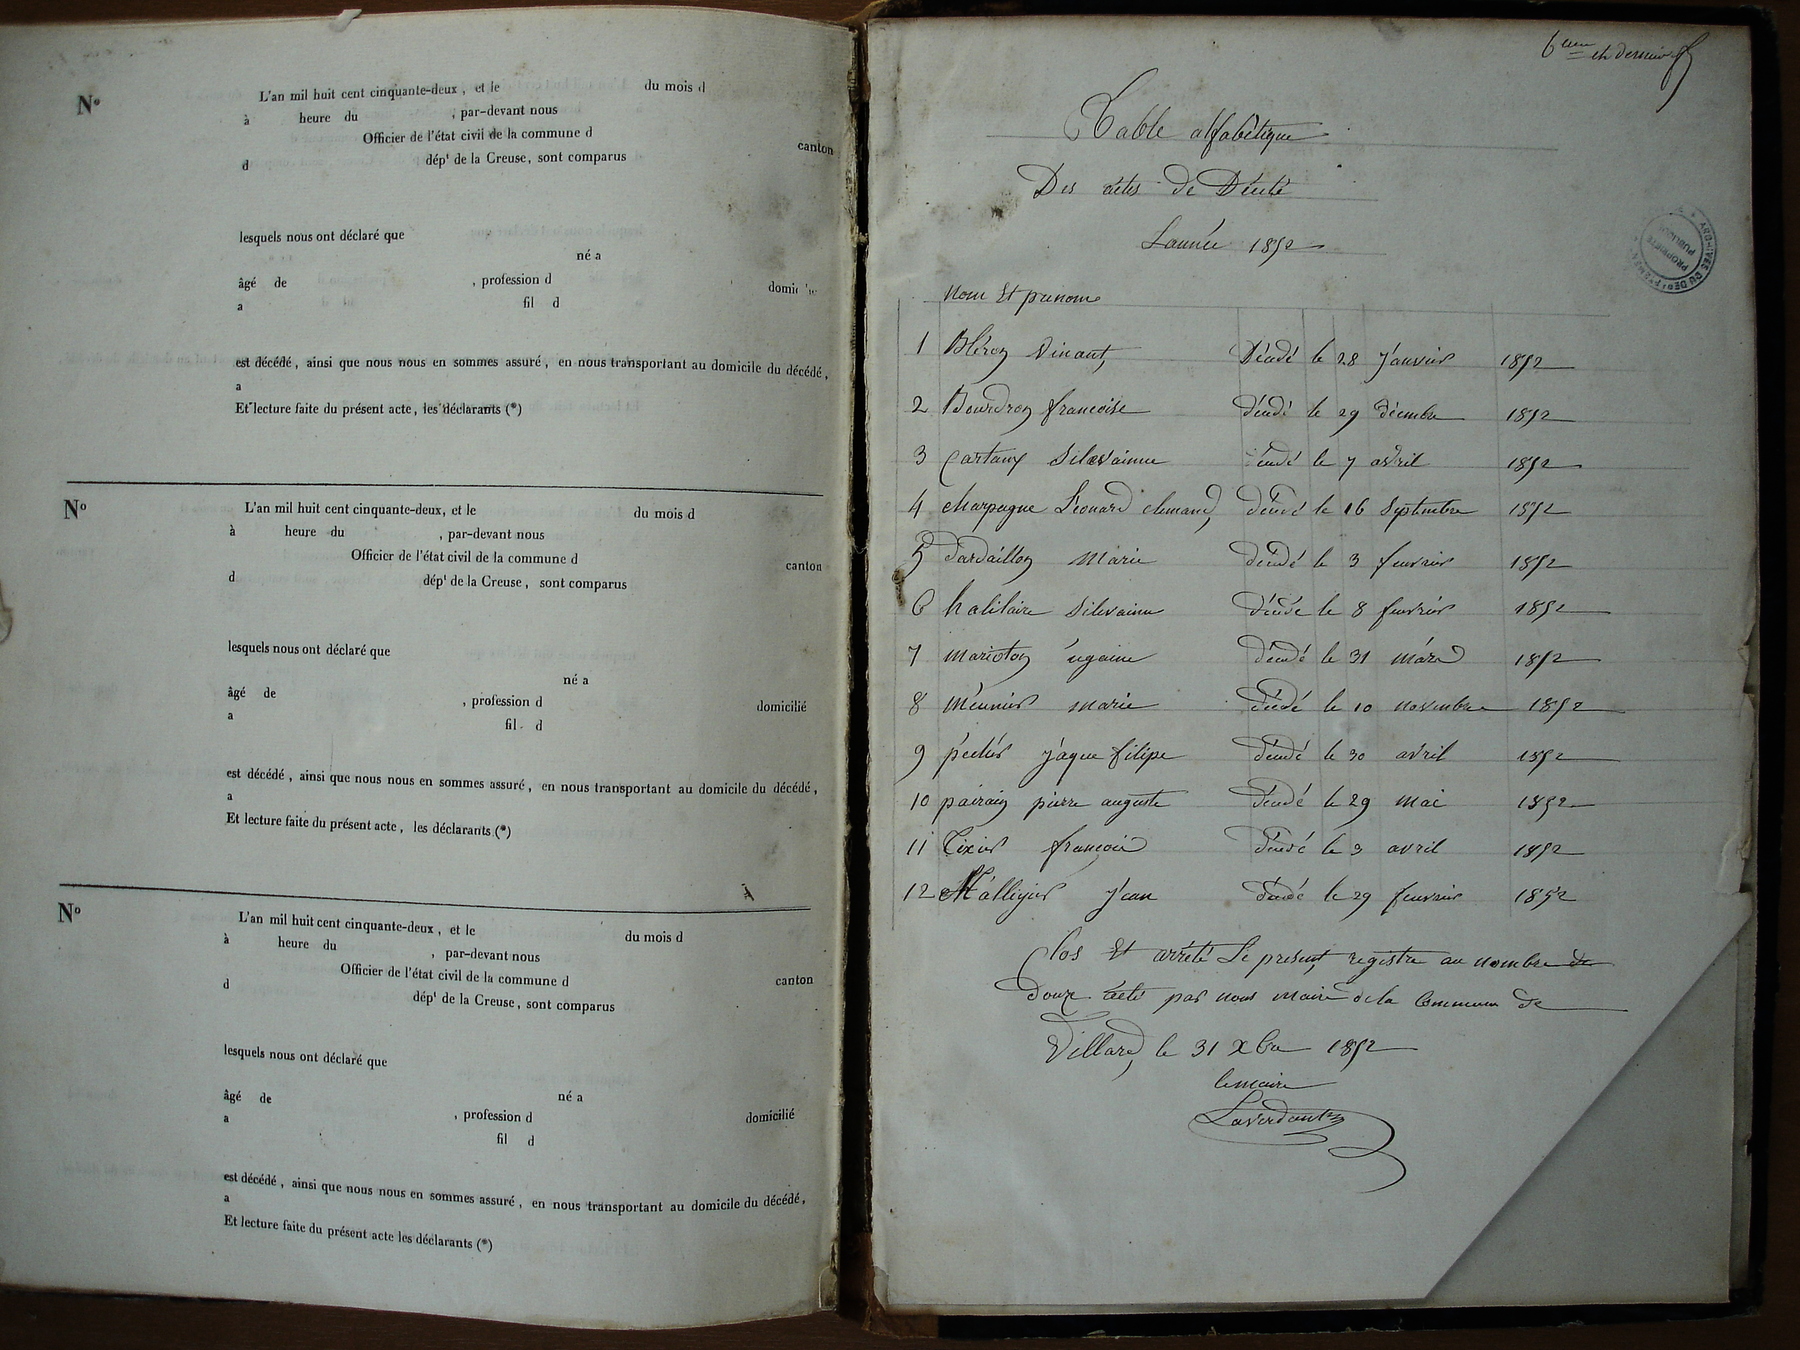 Nº
L'an mil huit cent cinquante-deux, et le du mois d
à heure du , par-devant nous
Officier de l'état civil de la commune d
canton
d dépt de la Creuse, sont comparus
lesquels nous ont déclaré que
né a
âgé de , profession d
a fil d
est décédé, ainsi que nous nous en sommes assuré, en nous transportant au domicile du décédé,
a
Et lecture faite du présent acte, les déclarants (*)
Nº
L'an mil huit cent cinquante-deux, et le du mois d
à heure du , par-devant nous
Officier de l'état civil de la commune d
canton
d dépt de la Creuse, sont comparus
lesquels nous ont déclaré que
né a
âgé de , profession d domicilié
a fil d
est décédé, ainsi que nous nous en sommes assuré, en nous transportant au domicile du décédé,
a
Et lecture faite du présent acte, les déclarants (*)
Nº
L'an mil huit cent cinquante-deux, et le du mois d
à heure du , par-devant nous
Officier de l'état civil de la commune d
canton
d dépt de la Creuse, sont comparus
lesquels nous ont déclaré que
né a
âgé de , profession d domicilié
a fil d
est décédé, ainsi que nous nous en sommes assuré, en nous transportant au domicile du décédé,
a
Et lecture faite du présent acte les déclarants (*)
6eme et dernier
Table alfabètique
Des actes de Décté
L'année 1852
ARCHIVES DU DEPT
PROPRIÉTÉ PUBLIQUE
nom Et prenom
1 Bléron Vinant Décédé le 28 Janvier 1852
2 Bourdron francoise décédé le 29 décembre 1852
3 Cartaux Silvainne décédé le 7 avril 1852
4 charpagne Léonard clemand décédé le 16 Septembre 1852
5 dardaillon Marie décédé le 3 fevrier 1852
6 halilaire Silvainne décédé le 8 fevrier 1852
7 marioton ugaine décédé le 31 mars 1852
8 meunier marie décédé le 10 novembre 1852
9 jaque filipe décédé le 30 avril 1852
10 pairain pierre auguste décédé le 29 mai 1852
11 Tixier francois décédé le 3 avril 1852
12 jean décédé le 29 fevrier 1852
Clos Et arrêté Le present registre au nombre de
douze acte par nous maire de la Commune de
Villard, le 31 Xbre 1852
le maire
Laverdant